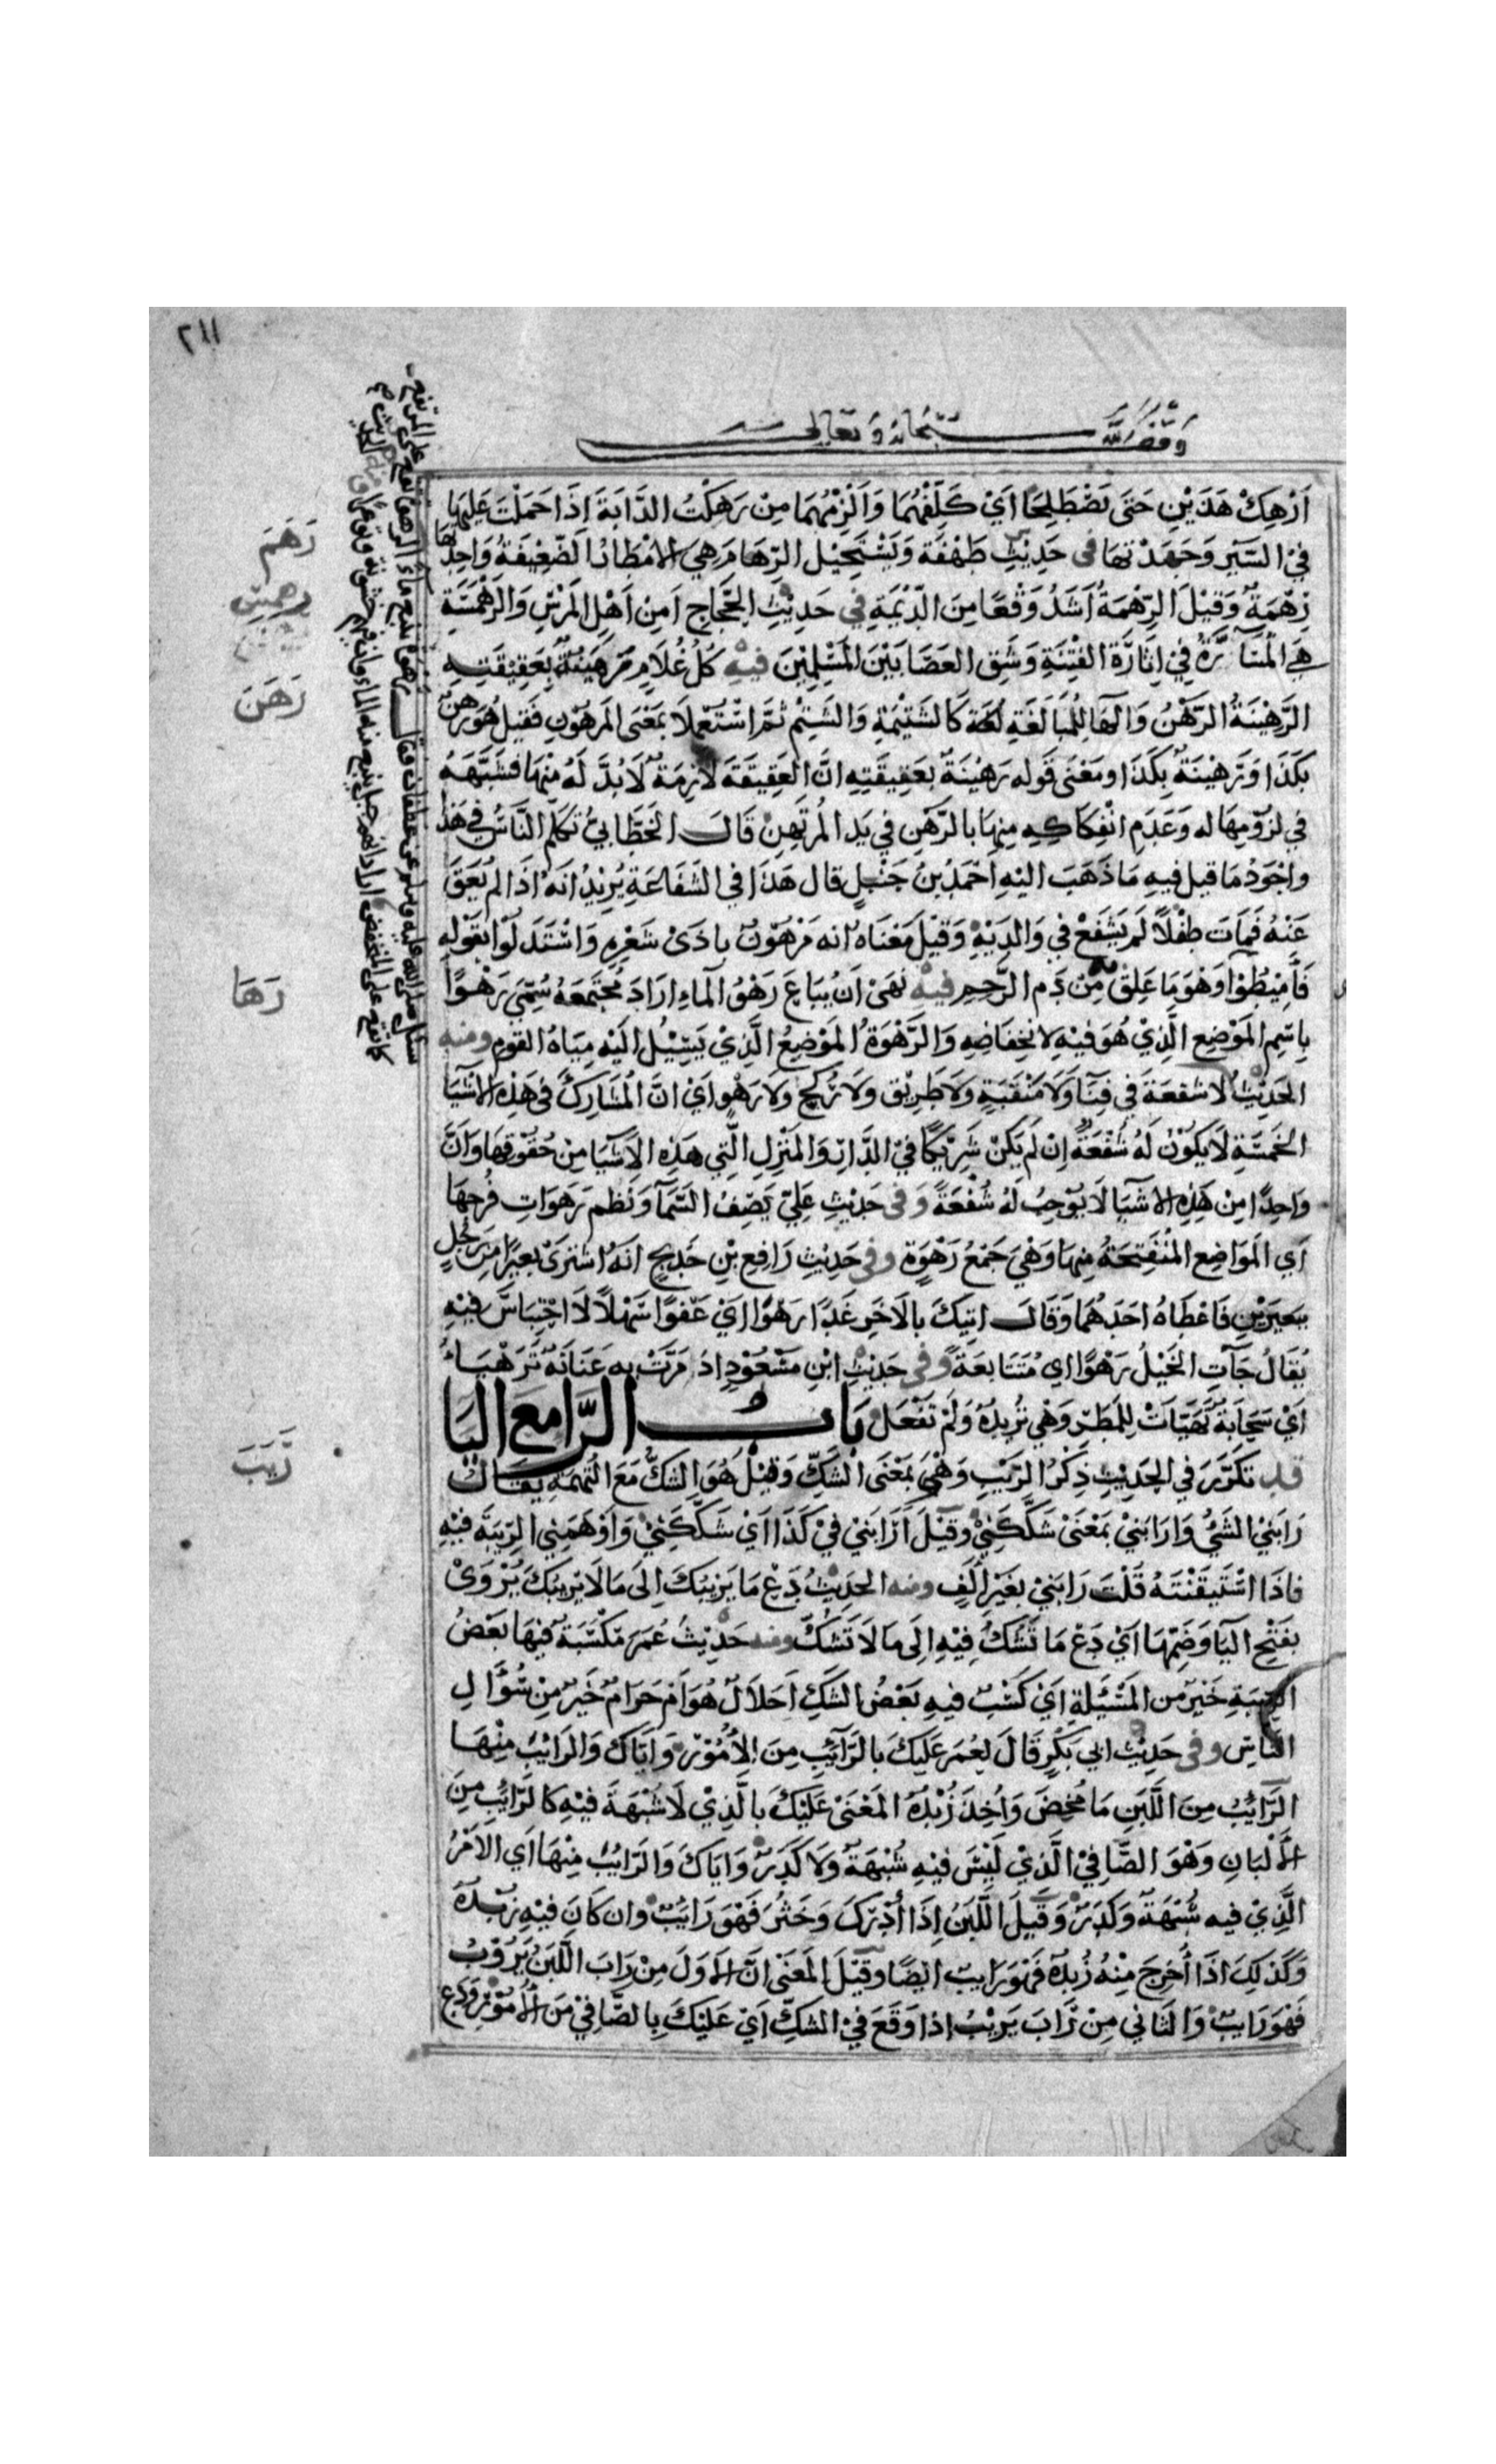 ٢١١
وقف لله سبحانه وتعالى
اَرْهِكْ هَذَيْنِ حَتَى يَصْطَلِحَا اَيْ كَلِّفْهُمَا وَاَلْزِمْهُمَا مِنْ رَهَكْتُ الدَّابَةَ اِذَا حَمَلْتَ عَلِيْهَا
فِيْ السَّيْرِ وَجَهَدْتهَا فى حَدِيْثِ طَهْفَة وَيَسْتَحِيْل الرِّهَامَ هِيَ الامْطَارُ الضَّعِيْفَةُ وَاحِدتُهَا
رِهْمَةٌ وَقِيْلَ الرِّهْمَةُ اَشَدُ وَقْعًا مِنَ الدّيْمَةِ فِي حَدِيْثِ الحَّجَاجِ اَمِنْ اَهْلِ المَرْسّ وَالرَّهْمَسَّةِ
هِيَ المُسَآرَّةُ فِيْ اِثَارَّةِ الفِتْنَةِ وَشَقِ العَصَا بَيْنَ المُسْلِمِيْنَ فيهِ كُلُ غُلَامٍ رَهِيْنَةٌ بِعَقِيْقَتِهِ
الرَّهِيْنَةُ الرَّهْنُ وَالهَا لِلْمُبَالَغَةِ كَالشَتِيْمَةِ وَالشَتِمْ ثُمَّ اسْتُعْمِلَا بِمَعْنَى المَرهُوْنِ فَقِيل هُوَ رَهْنٌ
بِكَذَا وَرَهْيْنَةٌ بِكَذَا ومَعْنَى قَوله رَهِيْنَةٌ بِعَقِيقَتِهِ انَّ العَقِيقَةَ لَازِمَةٌ لَابُدَّ لَهُ مِنْهَا فشَبَّهَهُ
في لزُوْمِهَا له وَعَدَمِ انْفِكَاكِهِ مِنهَا بالرَّهْنِ في يَدِ المُرتَهِنِ قَالَ الخَطَّابيُّ تكلّم النَّاسُ في هَذَا
واجْوَدُ مَا قيل فيهِ مَا ذَهَبَ اليْهِ اَحْمَدُ بْنُ حَنْبَلٍ قال هَذَا في الشَفَاعَةِ يُرِيْدُ انَهُ اذَا لم يُعَقَّ
عَنْهُ فَمَات طِفْلًا لَم يَشْفَعْ في وَالِدَيْهِ وَقِيْلَ مَعْنَاهُ انه مَرْهُوْنٌ باذَى شَعْرِهِ وَاسْتَدَلّوْا بقَوْلِهِ
فَأَمِيْطُوْا وَهُوَ مَا عَلِقَ مِنْ دَمِ الرَّحِمِ فيهِ نَهَىْ اَنْ يُبَاعَ رَهْوُ المآءِ ارَادَ مُجْتَمعَهُ سُمِّيَ رَهْوًا
بِاسْمِ المَوْضِعِ الَّذِيْ هُوَ فيْهِ لانخِفَاضِهِ وَالرَّهْوَةُ المَوْضِعُ الَّذِيْ يَسِيْلُ الَيْهِ مِيَاهُ القَوْمِ ومنه
الحَدِيْثُ لا شفعَةَ في فِنَآ وَلَا مَنْقَبَةٍ وَلَا طَرِيْق وَلَا رُكْحٍ وَلَا رَهْو اَيْ انَّ المُشَارِكَ في هَذِهِ الاشْيَا
الخَمسَةِ لَا يَكُوْنُ لَهُ شُفْعَةٌ اِنْ لَم يَكُنْ شَرِيْكًا فيْ الدَّارِ وَالمَنْزِلِ الَّتِي هَذِهِ الاَشْيَا مِنْ حُقُوْقِهَا وَانَّ
وَاحِدًا مِنْ هَذِهِ الاشَيَا لَا يُوْجِبُ لَهُ شُفْعَةً وَفي حَدِيْثِ عَلِيّ يَصِفُ السَّمآ وَنَظَم رَهَوَاتِ فُرَجِهَا
اَي المَوَاضِعِ المُنْفَتِحَةُ مِنهَا وَهْيَ جَمْعُ رَهْوَةٍ وفى حَدِيْثِ رَافِعِ بْنِ خَدِيْجٍ انَهُ اشْتَرَىْ بعيرًا مِن رَجُلٍ
ببَعِيرَيْنِ فَاعْطَاهُ احَدَهُمَا وَقَالَ اتِيكَ بالَاخَرِ غَدًا رَهْوًا اَيْ عَفوًا سَهْلًا لَا احْتِبَاسَ فيْهِ
يُقَالُ جَآتِ الخَيْلُ رَهْوًا اي مُتَتَابِعَةً وفي حَدِيْثِ ابْنِ مَسْعُوْدٍ اذ مَرَّتْ بِهِ عَنَانَةٌ تَرَهْيَاتْ
اَيْ سَحَابَةٌ تَهَيَّاتْ لِلمَطَرِ وَهْيَ تُرِيْدُهُ وَلَمْ تَفْعَلْ بَابُ الرَّامعَ اليَا
قد تكَرَّرَ في الحَدِيْثِ ذِكْرُ الرَّيْبِ وَهْيَ بمَعْنَى الشَكِّ وَقِيْلَ هُوَ الشَكُّ مَعَ التُّهَمَةِ يقَالُ
رَابَنِيْ الشَيُ وَارَابَنيْ بمَعْنَىْ شَكَّكَنِيْ وقيْلَ اَرَابَنيْ فيْ كَذَا اَيْ شَكَّكَنِيْ وَاَوْهَمَنِي الرِّيَبةَ فيْهِ
فاذَا اسْتَيقَنْتَهُ قُلْتَ رَابَنيْ بغَيْرِ اَلِفٍ ومنه الحَدِيْثُ دَعْ مَا يَرِيْبُكَ اِلَى مَا لَا يُرِيْبُكَ يُرْوَىْ
بفَتْحِ اليَا وَضَمِّهَا اَيْ دَعْ مَا تَشُكُّ فِيْهِ اِلَى مَا لَا تَشُكُّ ومنه حَدِيْثُ عُمَرَ مَكْسَبَةٌ فيْهَا بَعْضُ
الرّيْبَةِ خَيْرٌ من المَسْئَلةِ اَيْ كَسْبٌ فيهِ بَعْضُ الشَكِّ اَحَلاَلٌ هُوَ اَمْ حَرَامٌ خَيْرٌ مِنْ سُؤَالِ
النَّاسِ وفى حَدِيْثِ ابي بَكْرٍ قَالَ لِعُمَرَ عَلَيكَ بالرَّآئِبِ مِنَ الأُمُوْرِ وَايَاكَ وَالرَائِبَ مِنْهَا
الرَّائِبُ مِنَ اللَّبَنِ مَا مُخِضَ وَاُخِذَ زُبْدُهُ المَعْنَىْ عَلَيْكَ بالَّذِيْ لَا شُبْهَةَ فيْهِ كالرَّائِبِ مِنَ
الالْبَانِ وَهْوَ الصَّافيْ الَّذِيْ لَيْسَ فيْهِ شُبْهَةٌ وَلَا كَدَرٌ وَايَاكَ وَالرَائِبَ مِنْهَا اَي الاَمْرُ
الَّذِيْ فيه شُبْهَةٌ وَكَدَرٌ وَقِيلَ اللَّبَنُ اِذَا اُدْرَكَ وَخَثُرَ فَهْوَ رَايبٌ وان كَانَ فيْهِ زُبْدُهُ
وَكَذلِكَ اذَا اُخْرِجَ مِنْهُ زُبدُهُ فَهْوَ رَايبٌ ايضًا وقِيْلَ المَعْنَىْ انَّ الاوَلَ مِنْ رَابَ اللَّبَنُ يَرُوْبُ
فَهْوَ رَايبٌ وَالثَاني مِنْ رَابَ يَرِيْبُ اذا وَقَعَ فيْ الشَكِّ اَيْ عَلَيْكَ بِالصَّافيْ مَن الاُمُوْرِ وَدَعِ
رَهَمَ
رهمس
رَهَنَ
رَهَا
رَيَبَ